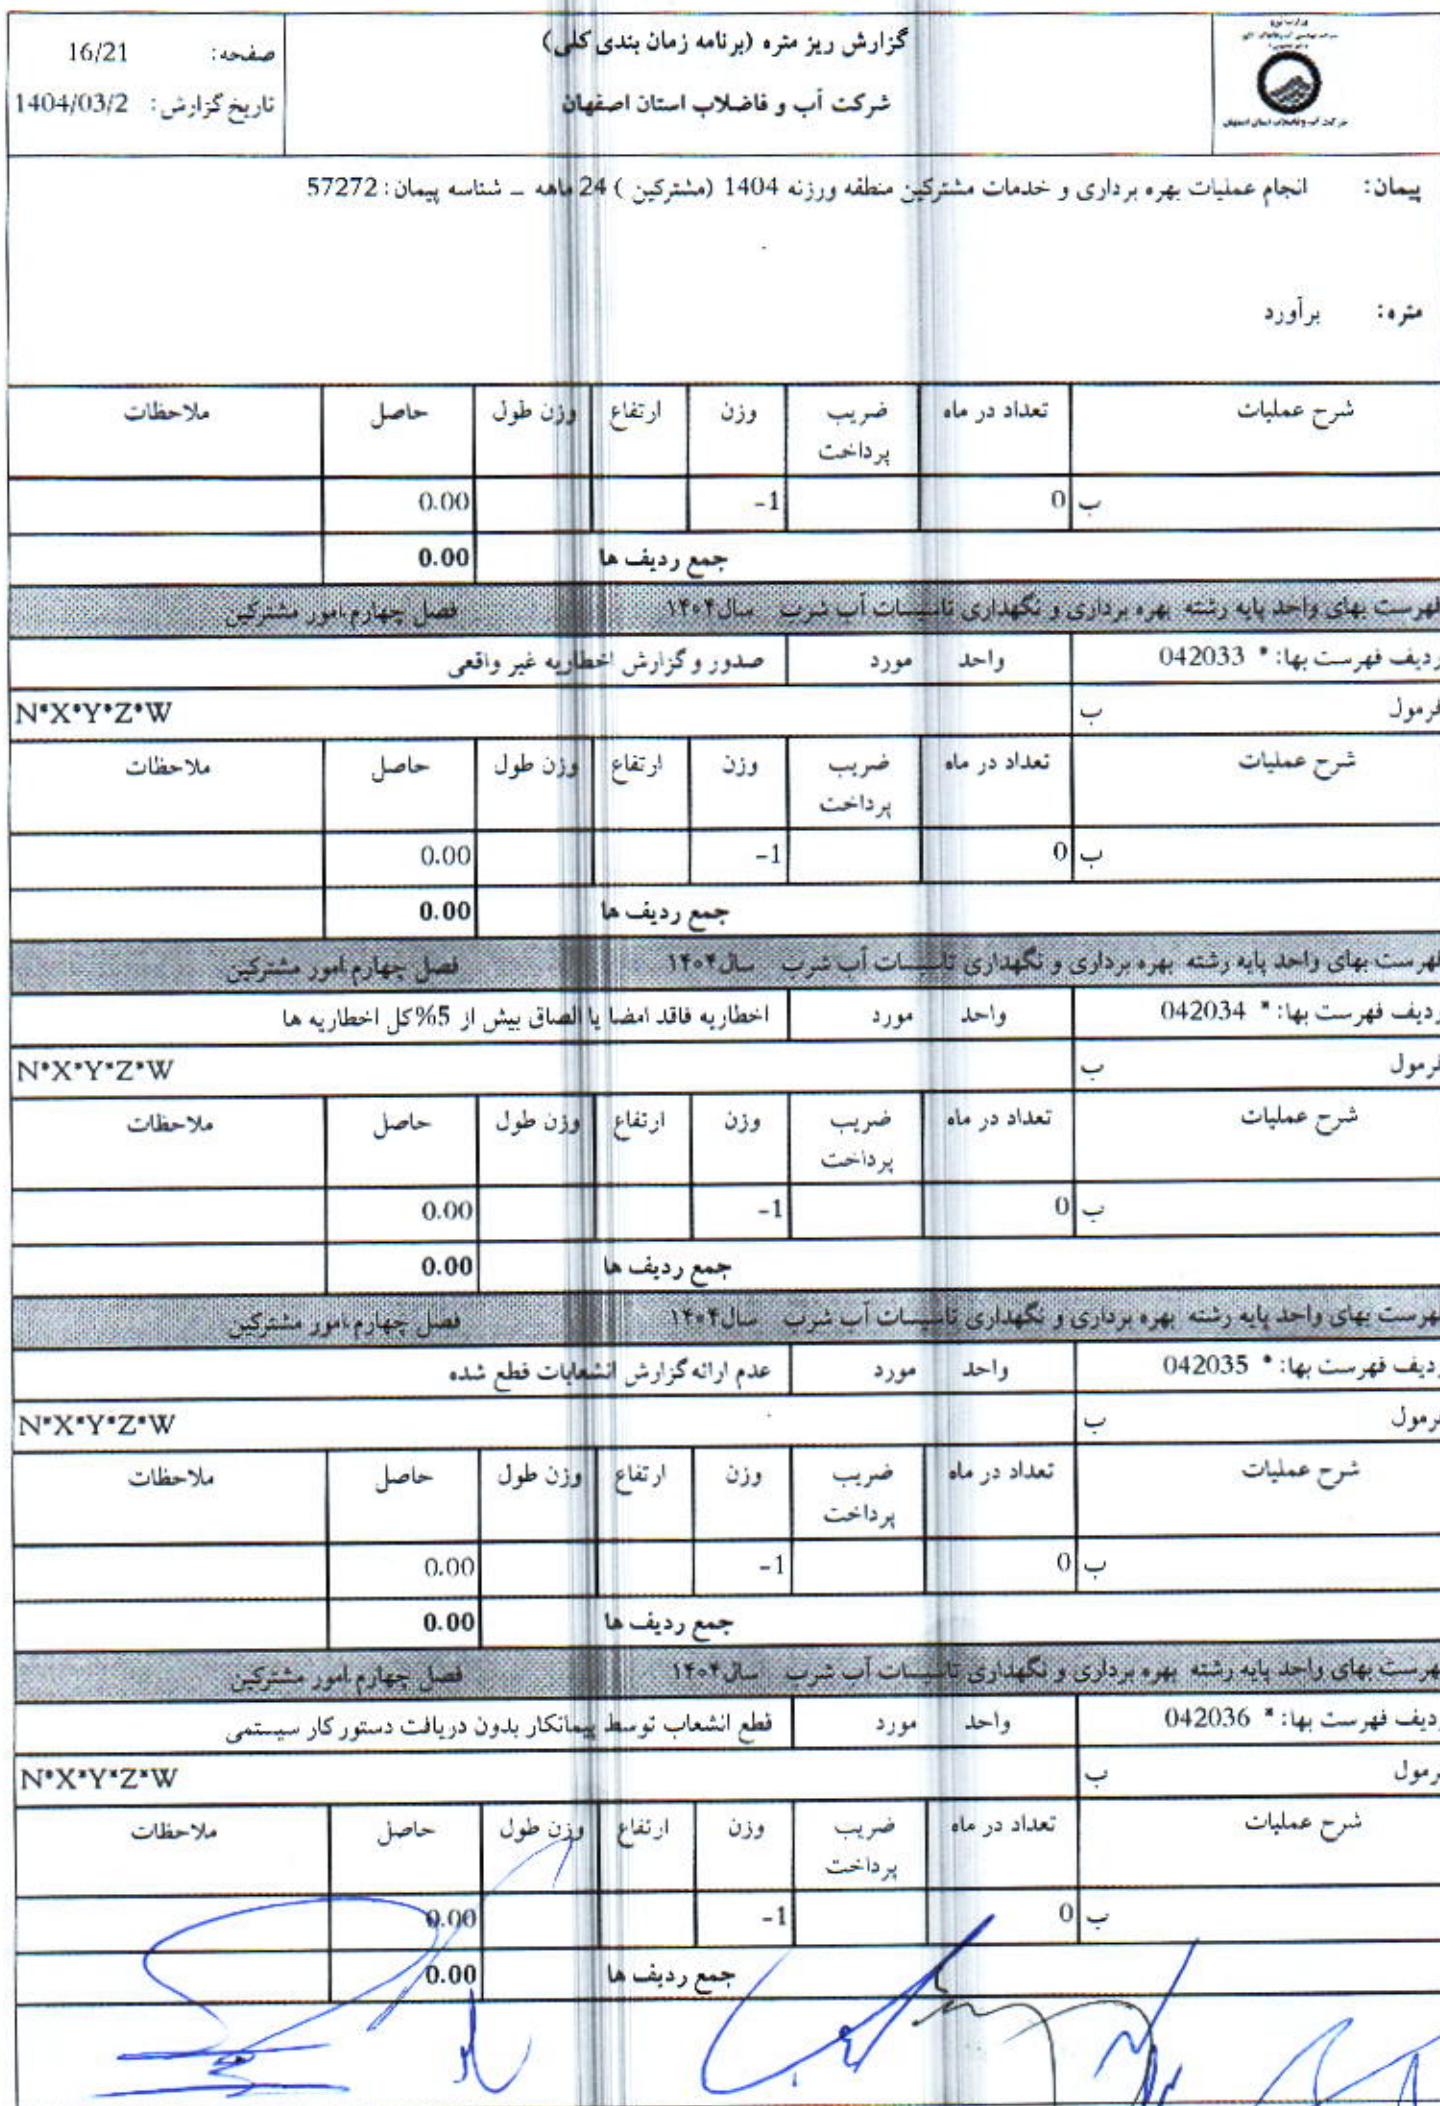 گزارش ریز متره (برنامه زمان بندی کلی)
شرکت آب و فاضلاب استان اصفهان
صفحه: 16/21
تاریخ گزارش: 1404/03/2
شرکت آب و فاضلاب استان اصفهان
پیمان: انجام عملیات بهره برداری و خدمات مشترکین منطقه ورزنه 1404 (مشترکین ) 24 ماهه _ شناسه پیمان: 57272
متره: برآورد
شرح عملیات تعداد در ماه ضریب پرداخت وزن ارتفاع وزن طول حاصل ملاحظات
ب 0 -1 0.00
جمع ردیف ها 0.00
فهرست بهای واحد پایه رشته بهره برداری و نگهداری تاسیسات آب شرب سال۱۴۰۴ فصل چهارم.امور مشترکین
ردیف فهرست بها: * 042033 واحد مورد صدور و گزارش اخطاریه غیر واقعی
فرمول ب N*X*Y*Z*W
شرح عملیات تعداد در ماه ضریب پرداخت وزن ارتفاع وزن طول حاصل ملاحظات
ب 0 -1 0.00
جمع ردیف ها 0.00
فهرست بهای واحد پایه رشته بهره برداری و نگهداری تاسیسات آب شرب سال۱۴۰۴ فصل چهارم.امور مشترکین
ردیف فهرست بها: * 042034 واحد مورد اخطاریه فاقد امضا یا الصاق بیش از 5%کل اخطاریه ها
فرمول ب N*X*Y*Z*W
شرح عملیات تعداد در ماه ضریب پرداخت وزن ارتفاع وزن طول حاصل ملاحظات
ب 0 -1 0.00
جمع ردیف ها 0.00
فهرست بهای واحد پایه رشته بهره برداری و نگهداری تاسیسات آب شرب سال۱۴۰۴ فصل چهارم.امور مشترکین
ردیف فهرست بها: * 042035 واحد مورد عدم ارائه گزارش انشعابات قطع شده
فرمول ب N*X*Y*Z*W
شرح عملیات تعداد در ماه ضریب پرداخت وزن ارتفاع وزن طول حاصل ملاحظات
ب 0 -1 0.00
جمع ردیف ها 0.00
فهرست بهای واحد پایه رشته بهره برداری و نگهداری تاسیسات آب شرب سال۱۴۰۴ فصل چهارم.امور مشترکین
ردیف فهرست بها: * 042036 واحد مورد قطع انشعاب توسط پیمانکار بدون دریافت دستور کار سیستمی
فرمول ب N*X*Y*Z*W
شرح عملیات تعداد در ماه ضریب پرداخت وزن ارتفاع وزن طول حاصل ملاحظات
ب 0 -1 0.00
جمع ردیف ها 0.00